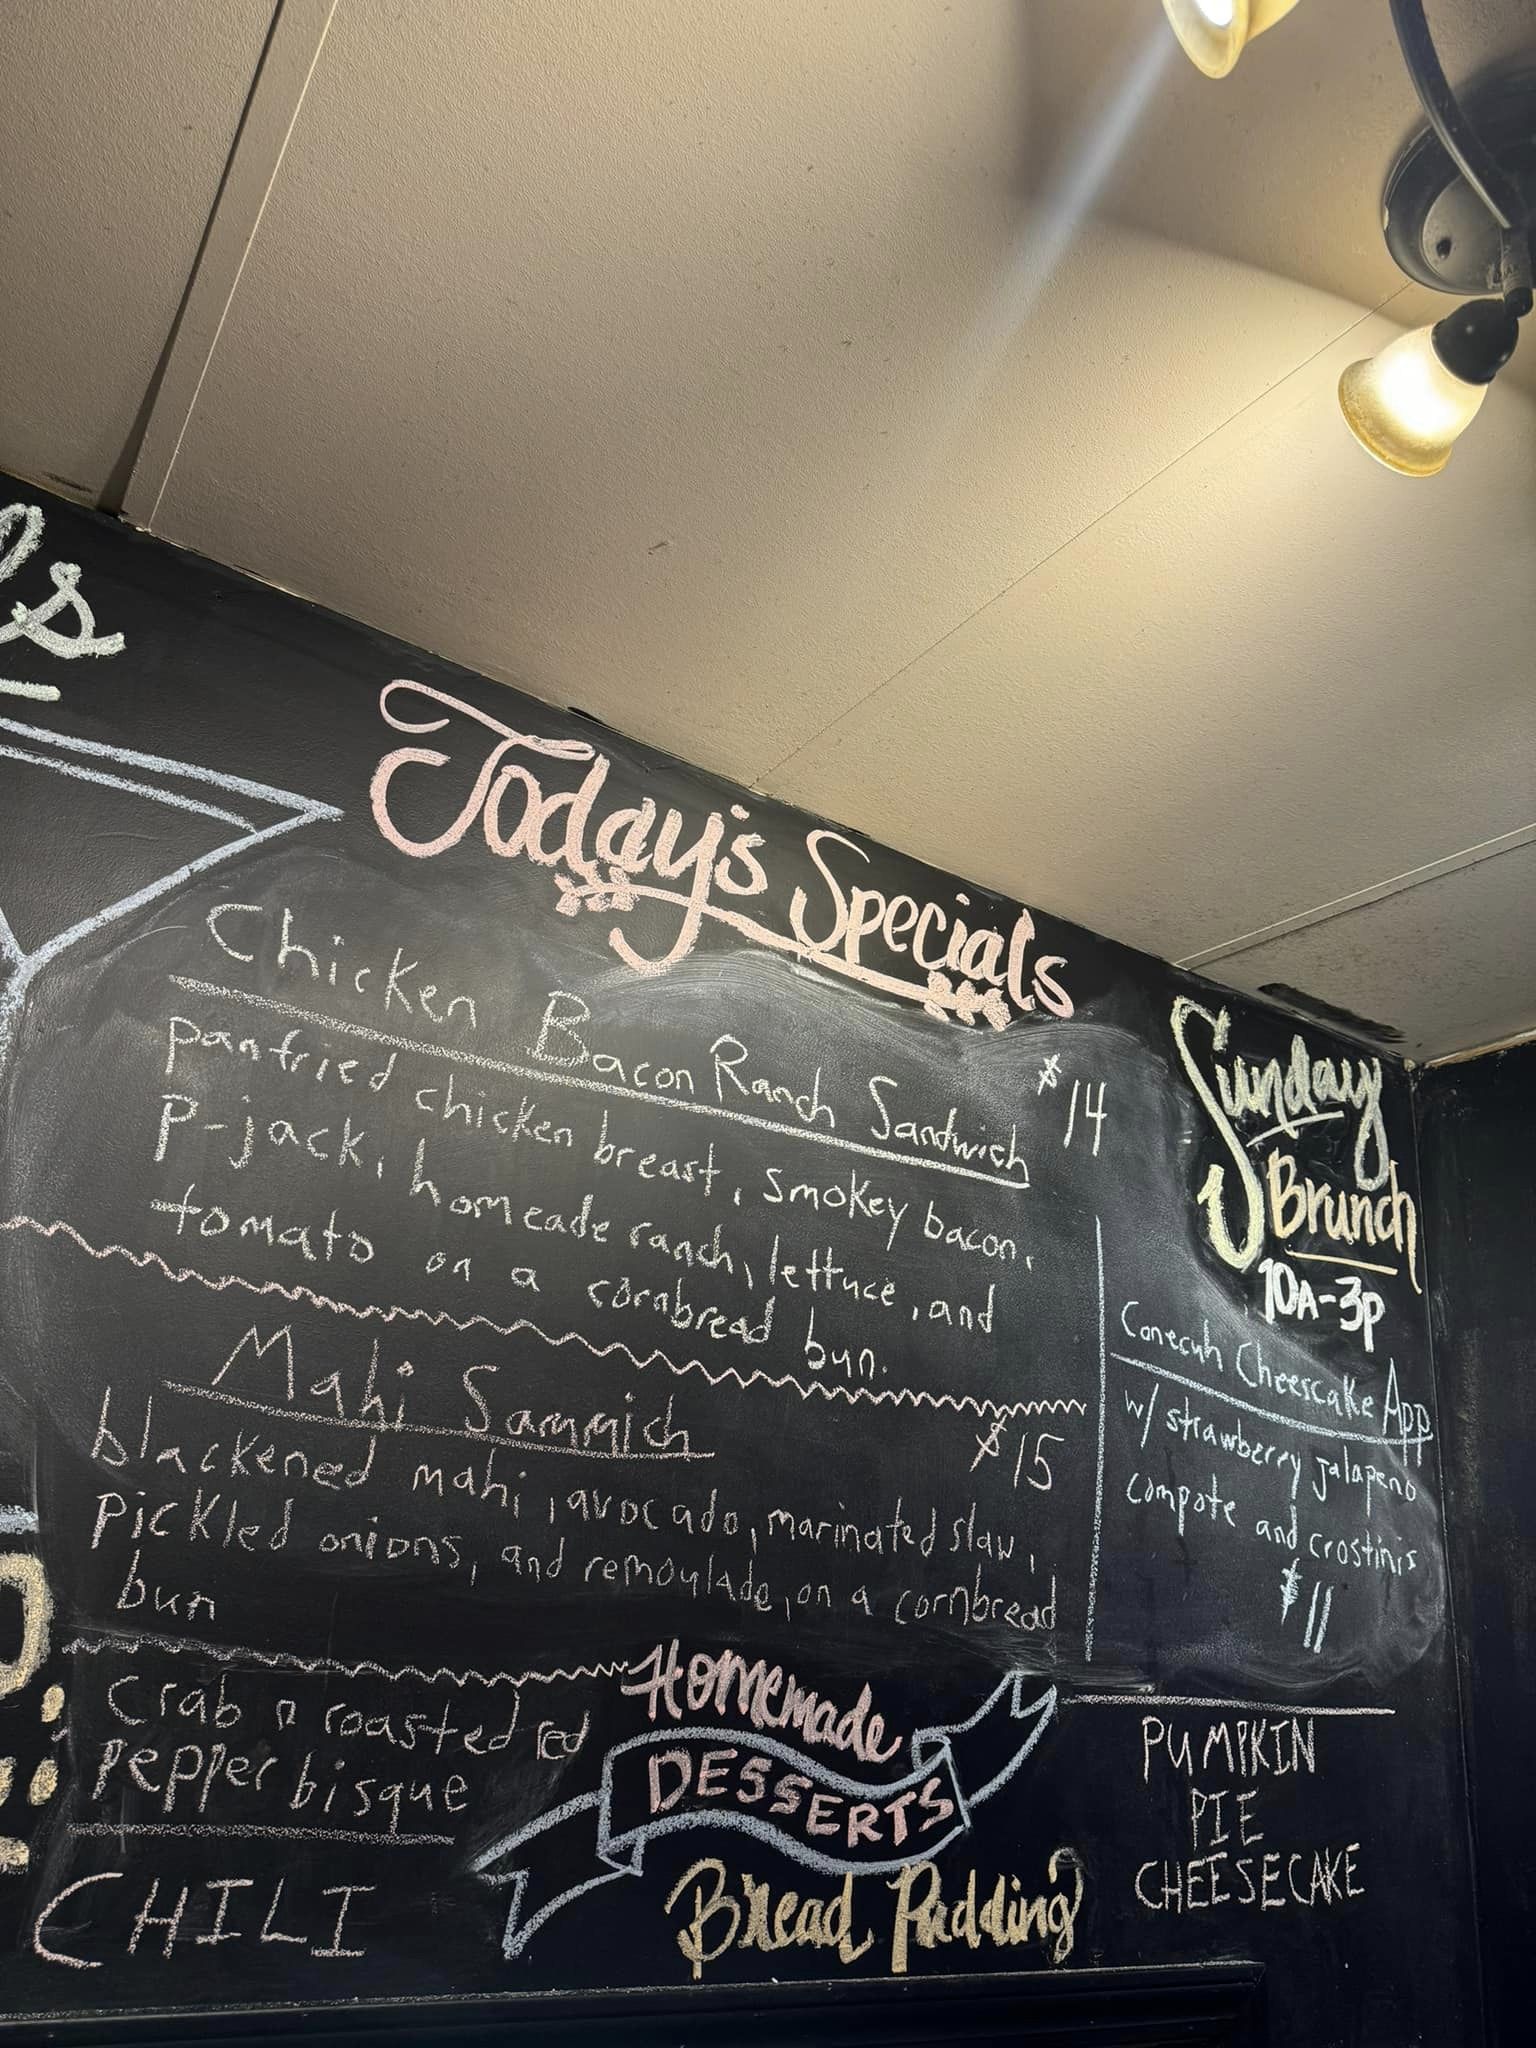 ls
Today's Specials
Chicken Bacon Ranch Sandwich $14
panfried chicken breast, smokey bacon,
P-jack, homeade ranch, lettuce, and
tomato on a cornbread bun.
Mahi Sammich $15
blackened mahi, avocado, marinated slaw,
pickled onions, and remoulade, on a cornbread
bun
Crab n roasted red
pepper bisque
CHILI
Homemade
DESSERTS
Bread Pudding
Sunday
Brunch
10A-3P
Conecuh Cheescake App
w/ strawberry jalapeno
compote and crostinis
$11
PUMPKIN
PIE
CHEESECAKE